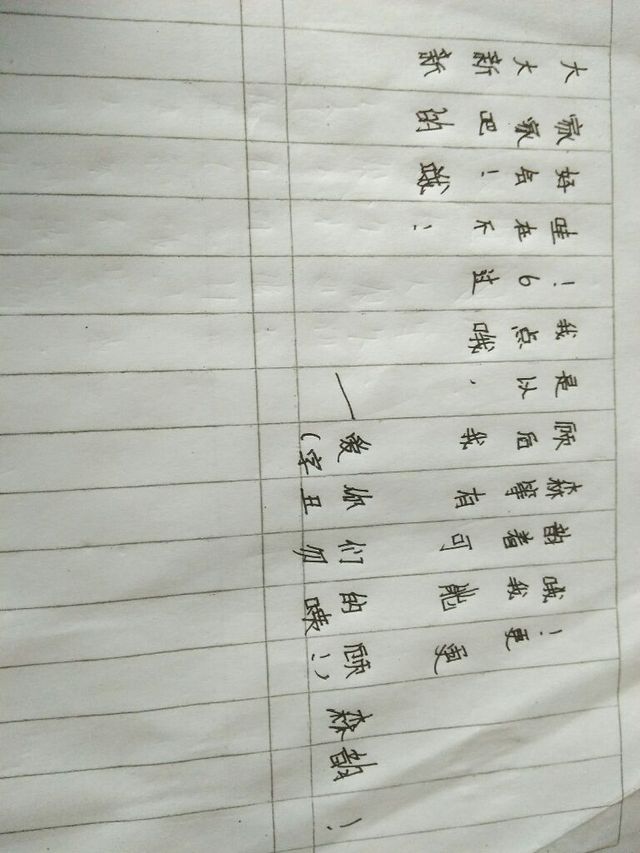 大家好哇！我是顾森韵哦！
大家会在6点以后等着我更
新吧！不过哦，我有可能更
新的哦！
——爱你们的顾森韵！
(字丑勿喷！)